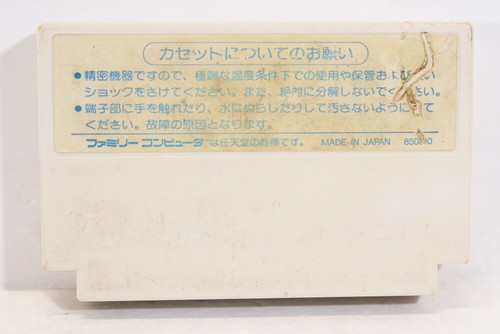 カセットについてのお願い
●精密機器ですので、極端な温度条件下での使用や保管および強い
ショックをさけてください。また、絶対に分解しないでください。
●端子部に手を触れたり、水にぬらしたりして汚さないようにして
ください。故障の原因となります。
ファミリーコンピュータ™は任天堂の商標です。 MADE IN JAPAN